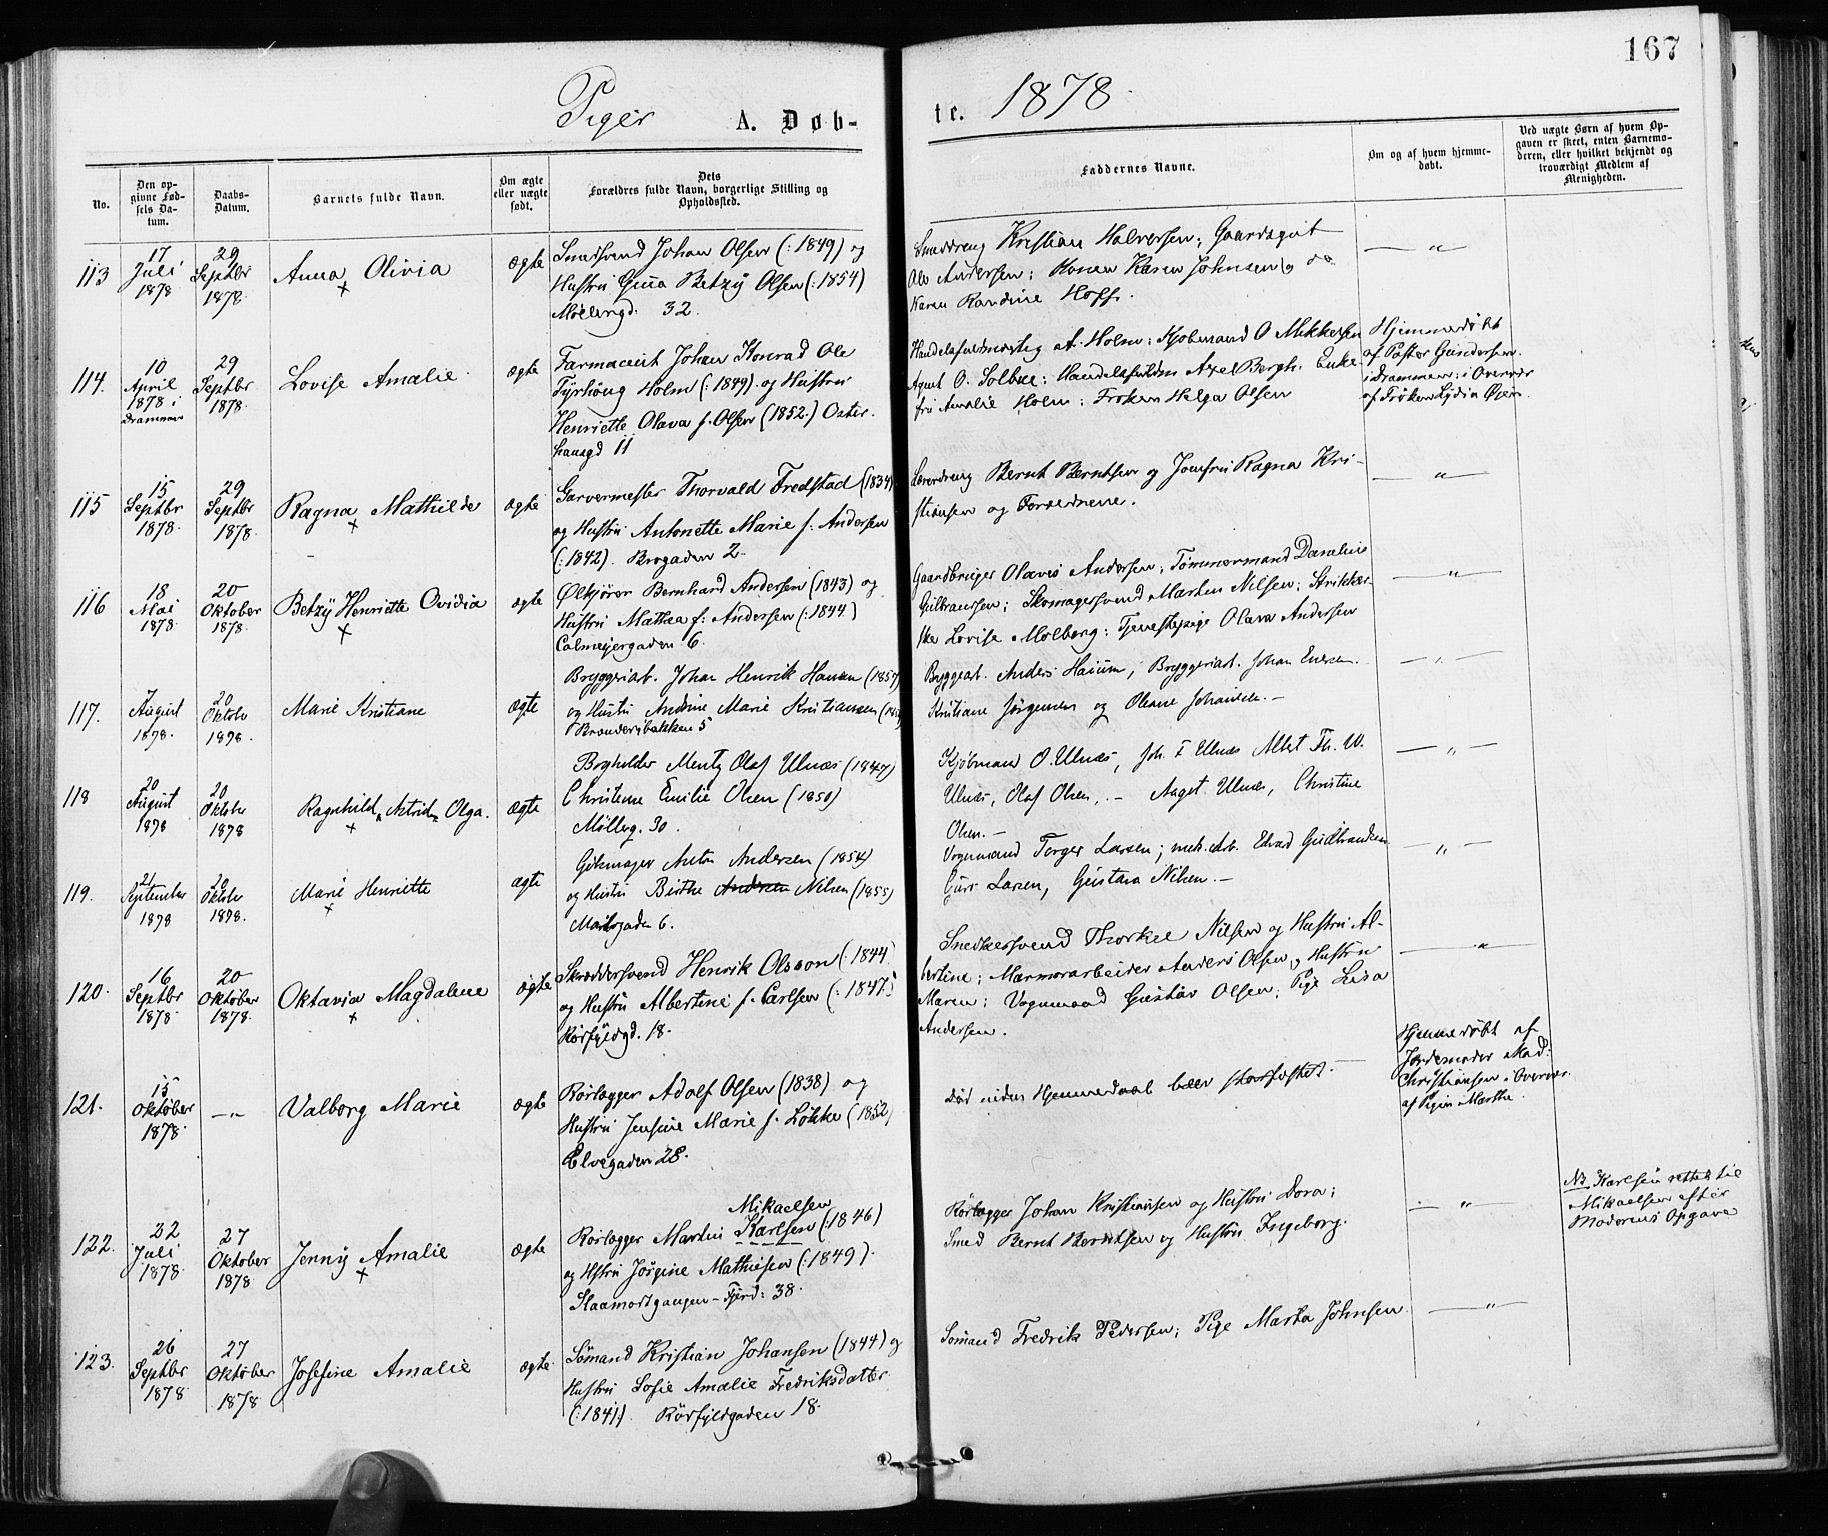 167
Piger A. Døb-
te. 1878.
No.
Den op-
givne Fød-
sels Da-
tum.
Daabs-
Datum.
Barnets fulde Navn.
Om ægte
eller uægte
født.
Dets
Forældres fulde Navn, borgerlige Stilling og
Opholdssted.
Faddernes Navne.
Om og af hvem hjemme-
døbt.
Ved uægte Børn af hvem Op-
gaven er skeet, enten Barnemo-
deren, eller hvilket bekjendt og
troværdigt Medlem af
Menigheden.
113
17
Juli
1878
29
Septbr
1878.
Anna Olivia
x
ægte
Smedsvend Johan Olsen (:1849) og
Hustru Gina Betzy Olsen (:1854)
Møllergd. 32.
Smeddreng Kristian Halvorsen; Gaardsgut
Ole Andersen; Konen Karen Johnsen og do
Karen Randine Hoff.
— " —
114.
10
April
1878 i
Drammen
29
Septbr
1878.
Lovise Amalie.
ægte
Farmaceut Johan Konrad Ole
Tyrhong Holm (:1849). og Hustru
Henriette Olava f. Olsen (1852.) Oster
hausgd 11
Handelsfuldmægtig A. Holm; Kjøbmand O Mikkelsen
Agent O. Solbue; Handelsfuldm Axel Bergh. Enke-
fru Amalie Holm; Frøken Helga Olsen
Hjemmedøbt
af Pastor Gundersen
i Drammen; i Overvær
af Frøken Lydia Øien.
115
15
Septbr
1878.
29
Septbr
1878.
Ragna Mathilde
x
ægte
Garvermester Thorvald Fredstad (1834)
og Hustru Antonette Marie f. Andersen
(:1842). Brogaden 2.
Læredreng Bernt Berntsen og Jomfru Ragna Kri-
stiansen og Forældrene.
— " —
116
18
Mai
1878.
20
Oktober
1878.
Betzy Henriette Ovidia
x
ægte
Ølkjører Bernhard Andersen (1843) og
Hustru Mathea f: Andersen (:1844.)
Calmeyergaden 6.
Gaardbruger Olaves Andersen; Tømmermand Danelius
Gulbransen; Skomagersvend Martin Nilsen; Strikker-
ske Lovise Molberg; Tjenestepige Olava Andersen
— " —
117.
7
August
1878.
20
Oktobr
1878.
Marie Kristiane
ægte
Bryggeriarb. Johan Henrik Hansen (1857)
og Hustru Andrine Marie Kristiansen
Brænderibakken 5
Bryggearb. Anders Hansen, Bryggeriarb. Johan Evensen.
Kristiane Jørgensen og Oleane Johansen. —
— " —
118
20
August
1878
20
Oktobr
1878
Ragnhild Astrid Olga.
x
ægte
Bogholder Mentz Olaf Ulnæs (1847)
Christine Emilie Olsen (1850)
Møllerg. 30.
Kjøbmand O. Ulnæs, Joh. F. Ulnæs Albert Th. W.
Ulnæs, Olaf Olsen, . — Aagot Ulnæs, Christine
Olsen. —
— " —
119.
21
September
1878
20
Oktobr
1878.
Marie Henriette
x
ægte
Gjørtmager Anton Andersen (1854)
og Hustru Birthe Andersen Nilsen (1855)
Maridsgaden 6.
Vognmand Torger Larsen; mek. Arb. Edvard Gudbrandsen
Guri Larsen, Gustava Nilsen. —
— " —
120.
16
Septbr
1878
20
Oktober
1878.
Oktavia Magdalene
x
ægte
Skræddersvend Henrik Olsson (:1844)
og Hustru Albertine f. Carlsen (:1847)
Rørfyldgd. 18.
Snedkersvend Thorkel Nilsen og Hustru Al-
bertine; Marmorarbeider Anders Olsen og Hustru
Maren; Vognmand Gustav Olsen; Pige Lisa
Andersen.
— " —
121.
15
Oktober
1878.
— " —
Valborg Marie
ægte
Rørlægger Adolf Olsen (1838) og
Hustru Jensine Marie f. Løkke (1852)
Elvegaden 28.
Død inden Hjemmedaab blev stadfæstet. —
Hjemmedøbt af
Jordemoder Mad:
Christiansen i Overvær
af Pigen Marthe.
122.
22
Juli
1878.
27
Oktober
1878.
Jenny Amalie
x
ægte
Mikaelsen
Rørlægger Martin Karlsen (:1846)
og Hstru Jørgine Mathisen (:1849).
Slaamotgangen – Fjerd: 38.
Rørlægger Johan Kristiansen og Hustru Dora;
Smed Bernt Berntsen og Hustru Ingeborg.
— " —
NB Karlsen rettet til
Mikaelsen efter
Moderens Opgave
123.
26
Septbr
1878.
27
Oktober
1878
Josefine Amalie
ægte.
Sømand Kristian Johansen (1844) og
Hustru Sofie Amalie Fredriksdatter
(:1841). Rørfyldgaden 18.
Sømand Fredrik Pedersen; Pige Marta Johnsen.
— " —